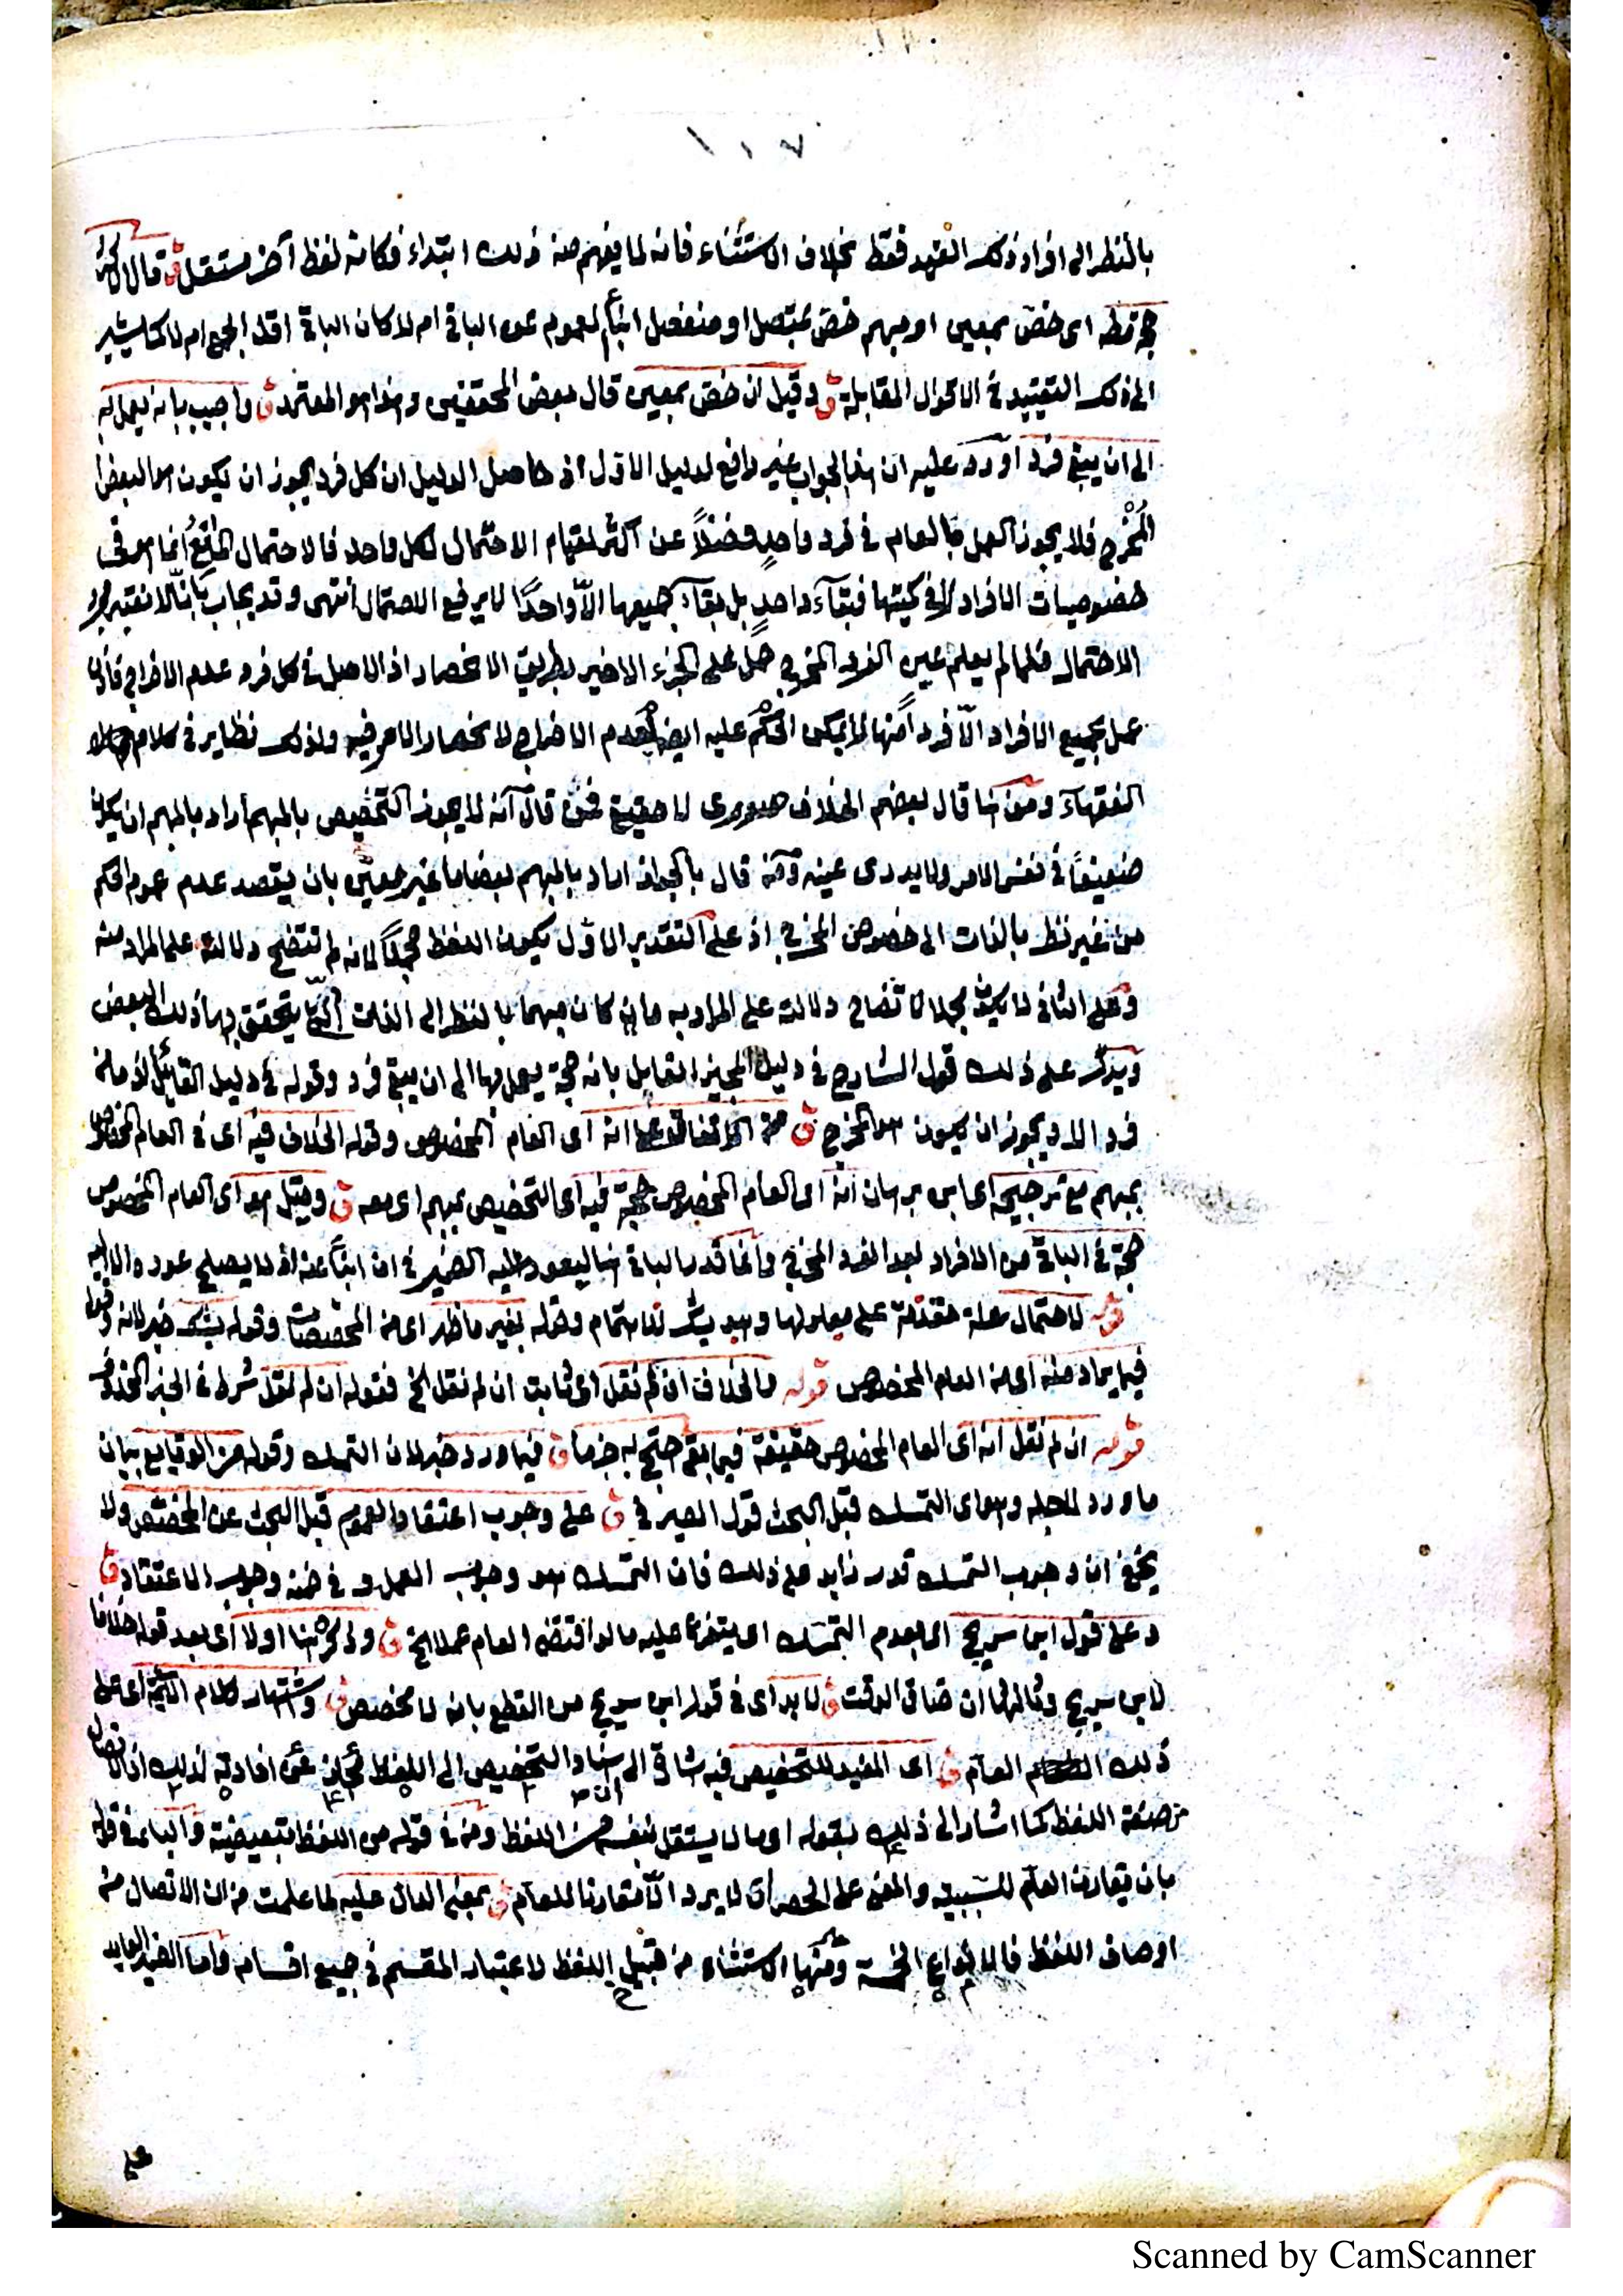 ١٠٧
بالنظر الى افراد ذلك العهد فقط بخلاف الاستثناء فانه لما يفهم منه ذلك ابتداء فكانه لفظ آخر مستقل ق قال الاكثر
حجة مطلقا اى خص بمعين او مبهم خص بمتصل او منفصل انبأ العموم عن الباقى ام لا كان الباقى اقل الجمع ام لا كما يشير
الى ذلك التقييد فى الاقوال المقابلة ق وقيل ان خص بمعين قال بعض المحققين وهذا هو المعتمد ق واجيب بانه يعمل به
الى ان يبقى فرد اورد عليه ان هذا الجواب غير دافع لدليل الاول اذ حاصل الدليل ان كل فرد يجوز ان يكون هو البعض
المُخْرج فلا يجوز العمل بالعام فى فرد واحدٍ فضلاً عن اكثر لقيام الاحتمال لكل واحد فالاحتمال المانع انما هو فى
خصوصيات الافراد لا فى كميتها فبقآء واحدٍ بل بقآء جميعها الاّ واحدًا لا يرفع الاحتمال انتهى وقد يجاب بانّا لا نعتبر مجرد
الاحتمال فلما لم يعلم عين الفرد المخرج حمل على الجزء الاخير بطريق الانحصار اذ الاصل فى كل فرد عدم الاخراج فاذا
عمل بجميع الافراد الاّ فردا منها لم يمكن الحكم عليه ايضا بعدم الاخراج لانحصار الامر فيه ولذلك نظاير فى كلام
الفقهآء ومن هنا قال بعضهم الخلاف صورى لا حقيقى فمن قال انه لا يجوز التخصيص بالمبهم أراد بالمبهم ان يكون
ضعيفاً فى نفس الامر ولا يدرى عينه ومن قال بالجواز اراد بالمبهم بعضا ما غير معين بان يقصد عدم عموم الحكم
من غير نظر بالذات الى خصوص المخرج اذ على التقدير الاول يكون اللفظ مجملاً لانه لم تتضح دلالته على المراد منه
وعلى الثانى لا يكون مجملا لاتضاح دلالته على المراد به وان كان مبهما بالنظر الى الذات التى يتحقق بها ذلك البعض
ويدل على ذلك قول الشارح فى دليل المجيز القايل بانه حجة يعمل بها الى ان يبقى فرد وقوله فى دليل القائل اذ ما من
فرد الا ويجوز ان يكون هو المخرج ق من الاتفاق على انه أى العام المخصوص وقوله الخلاف فيه أى فى العام المخصوص
بمبهم مع ترجيحه اى ابن برهان انه اى العام المخصوص حجة فيه اى التخصيص بمبهم اى معه ق وقيل هو اى العام المخصوص
حجة فى الباقى من الافراد بعد الفرد المخرج وانما قدر الباقى هنا ليعود عليه الضمير فى ان انبأ عنه اذ لا يصلح عوده الا اليه
قوله لاحتمال علة مقدمة على معلولها وهو يشك للاهتمام وقوله بغير ما ظهر اى من المخصصات وقوله يشك خبر لانه وقوله
فيما يراد منه اى من العام المخصوص قوله والخلاف ان لم نقل اى ثابت ان لم نقل الخ فقوله ان لم نقل شرط فى الخبر المحذوف
قوله ان لم نقل انه اى العام المخصوص حقيقة فيما بقى احتج به جزما ق فيما ورد خبر لان التمسك وقوله من الوقايع بيان
ما ورد لاجله وهو اى التمسك قبل البحث قول الصيرفى ق على وجوب اعتقاد العموم قبل البحث عن المخصص ولا
يخفى ان وجوب التمسك قدر زايد على ذلك فان التمسك هو وجوب العمل و فى ضمنه وجوب الاعتقاد ق
وعلى قول ابن سريج اى بعدم التمسك اى يتفرع عليه ما لو اقتضى العام عملا الخ ق وذكره هنا اولا أى بعد قوله خلافا
لابن سريج وثالثها ان ضاق الوقت ق لا بد اى فى قول ابن سريج من القطع بانه لا مخصص ق واشتهار كلام الائمة اى على
ذلك العام ق اى المفيد للتخصيص فيه اشارة الى ان اسناد التخصيص الى اللفظ مجاز عن افادته لذلك اذ الاتصال
من صفة اللفظ كما اشار الى ذلك بقوله اى ما لا يستقل بنفسه من اللفظ ومن فى قوله من اللفظ تبعيضية والباء فى قوله
بان يقارن العام للسببية والمعنى على الحصر أى لا يرد الاّ مقارنا للعام ق بمعنى الدال عليه لما علمت من ان الاتصال من
اوصاف اللفظ فالانواع الخمسة ومنها الاستثناء من قبيل اللفظ لاعتبار المقسم فى جميع اقسامه واما الضمير العايد
على
Scanned by CamScanner